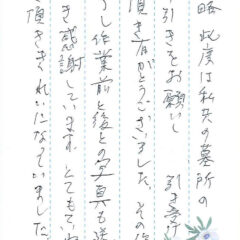 略 此度は私共の墓所の
引きをお願いし 引き受け
頂き有がとうございました。その後
し作業前と後との写真も送
き感謝しています とてもていね
頂ききれいになっていました。